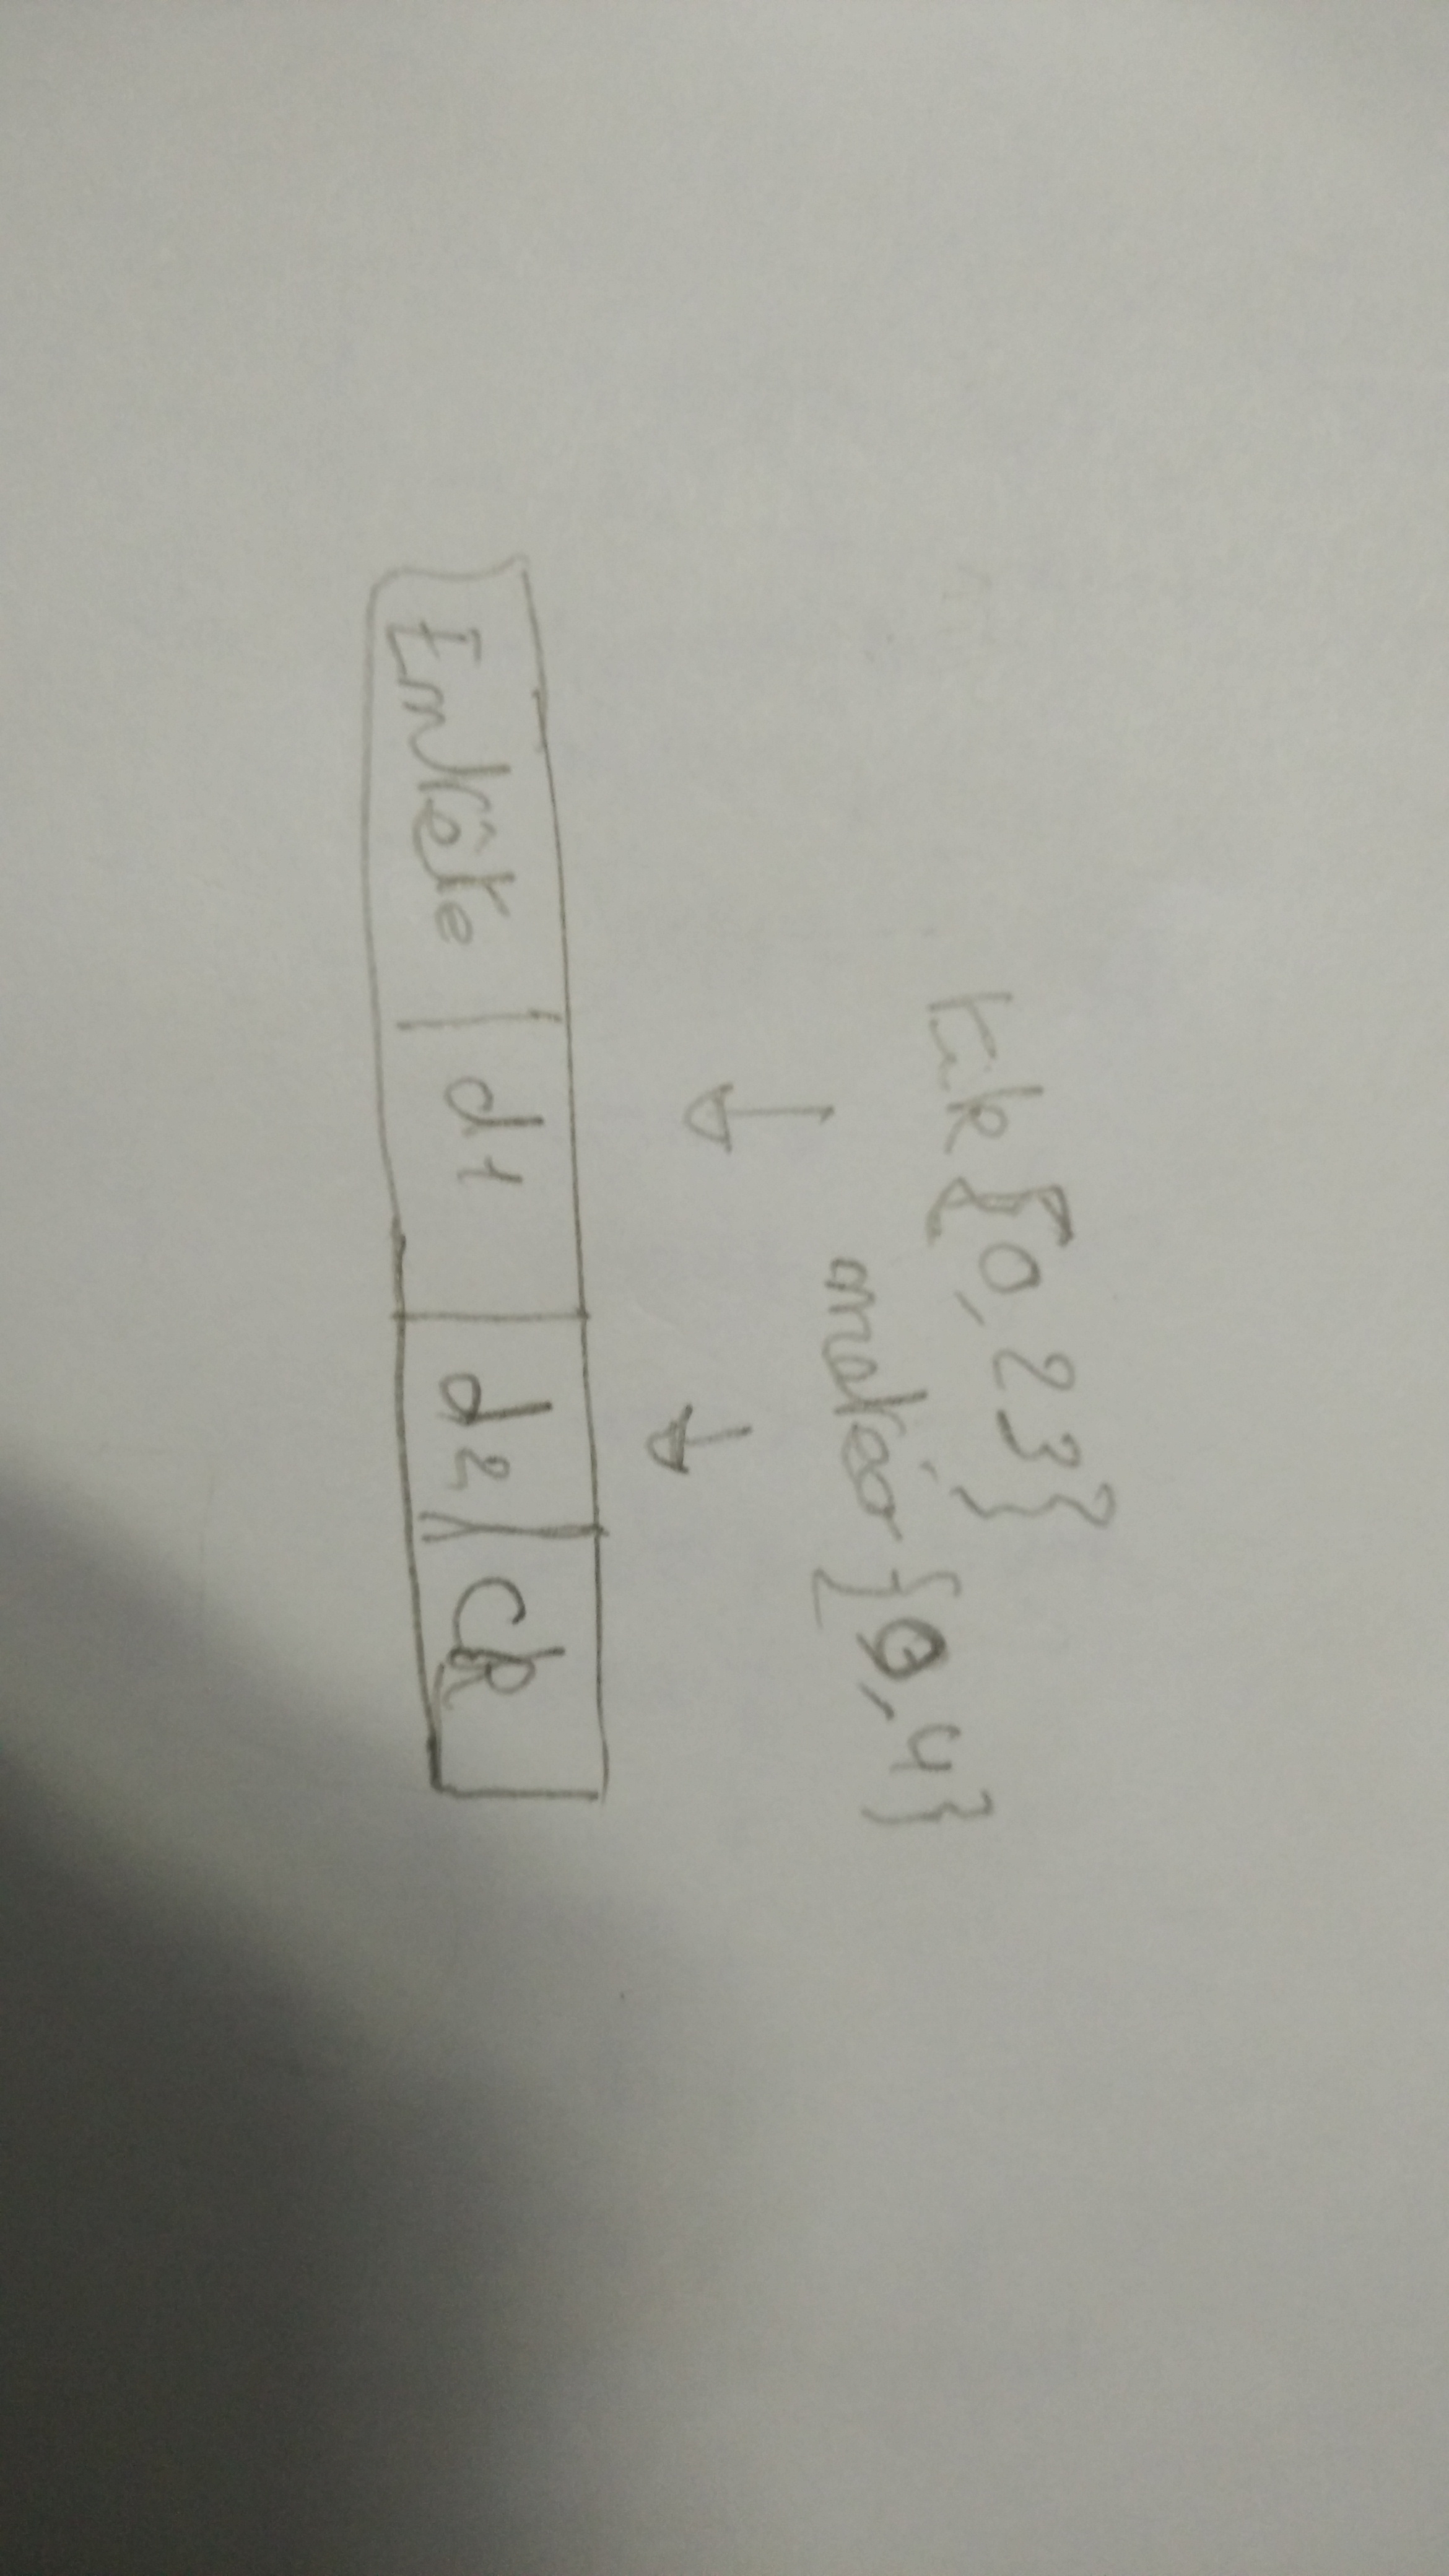 tik {0, 23}
météo {0, 4}
Entête | d1 | d2 | CR